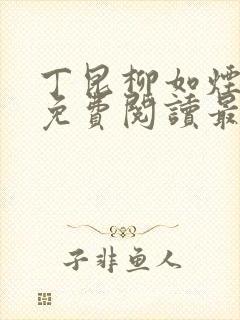 丁昆柳如煙
免費閱讀最
子非鱼人